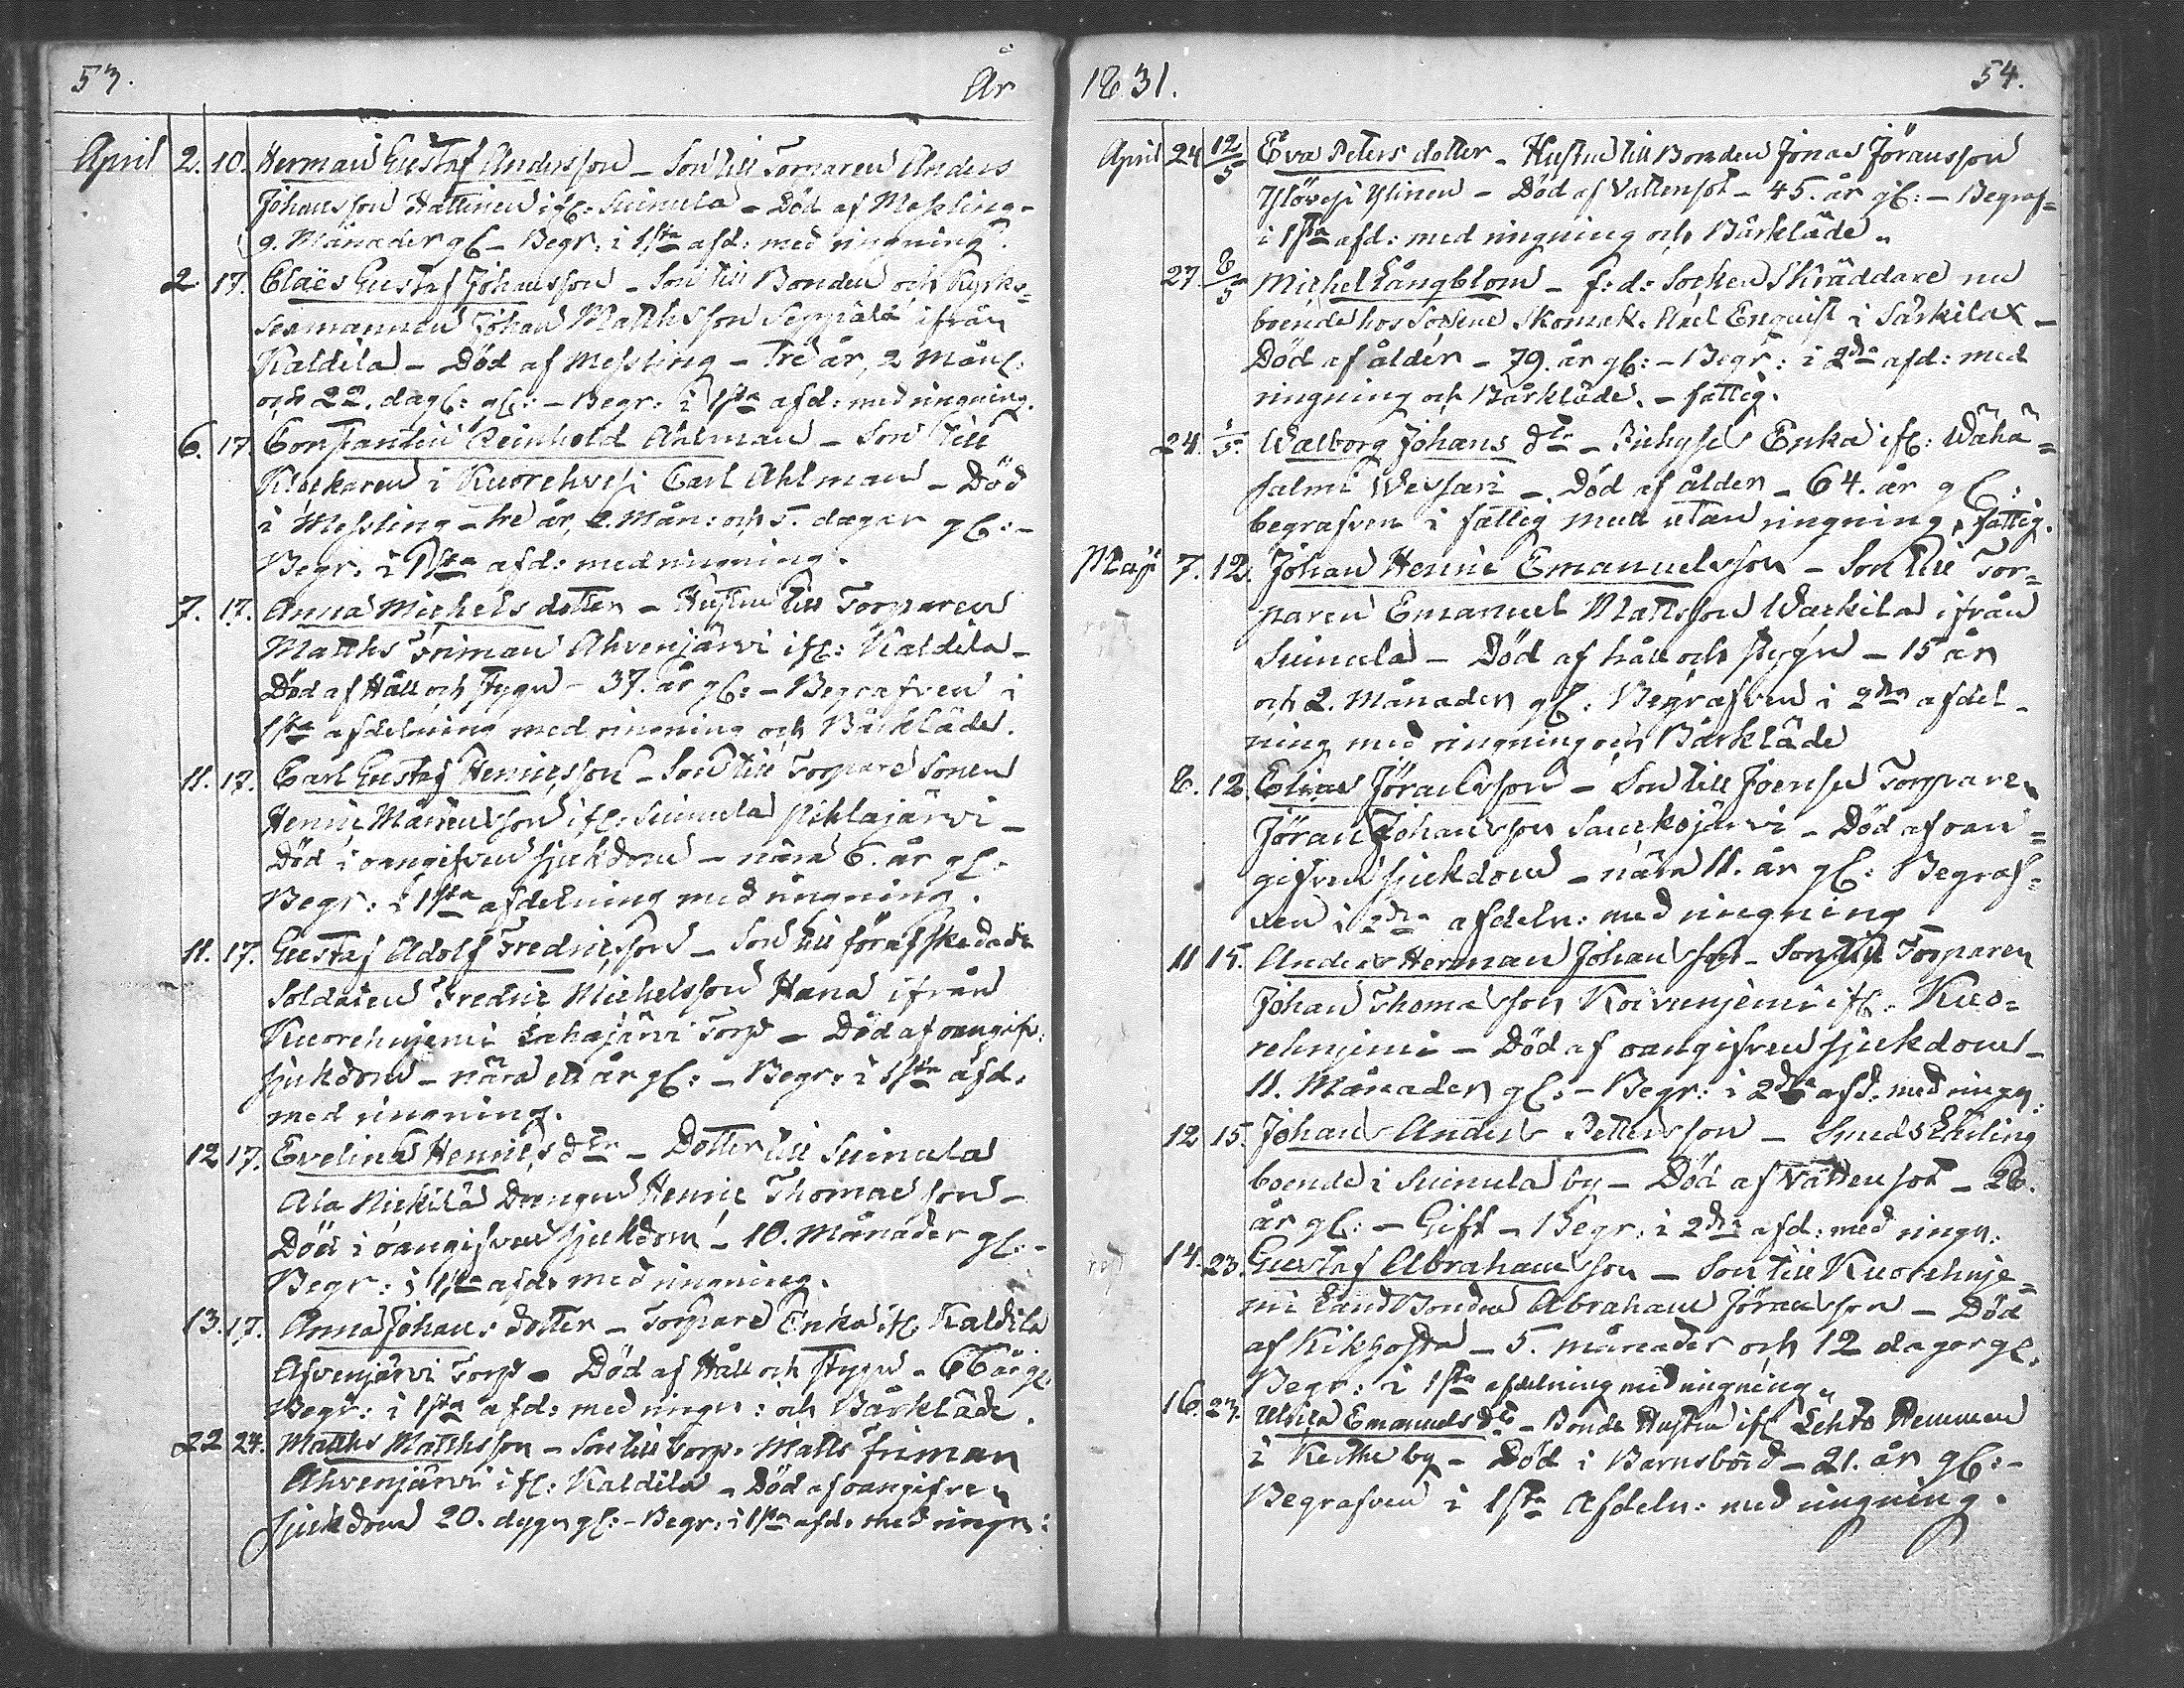 53. År
April 2. 10. Herman Gustaf Andersson - Son till Torparen Anders
Johansson Hattinen ifr: Suinula - Död af Messling -
9. Månader gl - Begr: i 1sta afd: med ringning.
2. 17. Claës Gustaf Johansson - Son till Bonden och Kyrko=
sexmannen Johan Matthsson Seppälä ifrån
Kaldila - Död af Messling - Tre år, 2 Mån:
och 22. dag: gl: - Begr: i 1sta afd: med ringning.
6. 17. Constantin Reinhold Ahlman - Son till
Klockaren i Kuorehvesi Carl Ahlman - Död
i Messling - tre år, 2. Mån: och 5. dagar gl: -
Begr: i 1sta afd: med ringning.
7. 17. Anna Michels dotter - Hustru till Torparen
Matths Friman Ahvenjärvi ifr: Kaldila -
Död af Håll och Stygn - 37. år gl: - Begrafven i
1sta afdelning med ringning och Bårkläde.
11. 17. Carl Gustaf Henricsson - Son till Torpare Sonen
Henric Mårtensson ifr: Suinula Pihlajärvi -
Död i oangifven sjukdom - nära 6. år gl:
Begr: i 1sta afdelning med ringning.
11. 17. Gustaf Adolf Fredricsson - Son till förafskedade
Soldaten Fredric Michelsson Hana ifrån
Kuorehniemi Lahajärvi Torp - Död af oangifv:
sjukdom - nära ett år gl: - Begr: i 1sta afd.
med ringning.
12 17. Evelina Henrics dtr - Dotter till Suinula
Ala Nickilä Drängen Henric Thomasson -
Död i oangifven sjukdom - 10. Månader gl: -
Begr: i 1sta afd: med ringning.
13. 17. Anna Johans dotter - Torpare Enka ifr Kaldila
Afvenjärvi Torp - Död af Håll och Stygn - 66 år gl.
Begr: i 1sta afd: med ringn: och Bårkläde.
22 24. Matths Matthsson - Son till Torp: Matts Friman
Ahvenjärvi ifr: Kaldila - Död af oangifven
sjukdom 20. dygn gl: - Begr: i 1sta afd: med ringn:
1831. 54.
April 24 12/5 Eva Peters dotter - Hustru till Bonden Jonas Jöransson
Ylinen - Död af Vattensot - 45. år gl: - Begraf=
i 1sta afd: med ringning och Bårkläde.
27. 8/5 Michel Långblom - f: d: Socken Skräddare nu
boende hos Sockne Skomak. Axel Enquist i Särkilax -
Död af ålder - 79. år gl: - Begr: i 2dra afd: med
ringning och Bårkläde. - fattig.
24. 1/5. Walborg Johans dtr - Inhyses Enka ifr: Wähä=
salmi Wessari - Död af ålder - 64. år gl:
begrafven i fattig med utan ringning, fattig.
Maji 7. 12. Johan Henric Emanuelsson - Son till Tor=
paren Emanuel Mattsson Warkila ifrån
Suinula - Död af håll och stygn - 15 år
och 2. Månader gl: Begrafven i 2dra afdel-
ning med ringning och Bårkläde
8. 12. Elias Jöransson - Son till Joensu Torparen
Jöran Johansson Saukojärvi - Död af oan=
gifven sjukdom - nära 11. år gl: Begraf=
ven i 2dra afdeln: med ringning
11 15. Anders Herman Johansson - Son till Torparen
Johan Thomasson Koivuniemi ifr. Kuo=
rehniemi - Död af oangifven sjukdom -
11. Månader gl: - Begr: i 2dra afd. med ringn:
12 15. Johan Anders Pettersson - Smeds
boende i Suinula by - Död af Vattensot - 28.
år gl: - Gift - Begr: i 2dra afd: med ringn.
14. 23. Gustaf Abrahamsson - Son till Kuorehnie=
mi LandBonden Abraham Jöransson - Död
af Kikhosta - 5. månader och 12 dagar gl.
Begr: i 1sta afdelning med ringning.
16. 23. Ulrica Emanuels dtr - Bonde Hustru ifr Lehto Hemman
i Keithe by - Död i Barnsbörd - 21. år gl: -
Begrafven i 1sta Afdeln: med ringning.